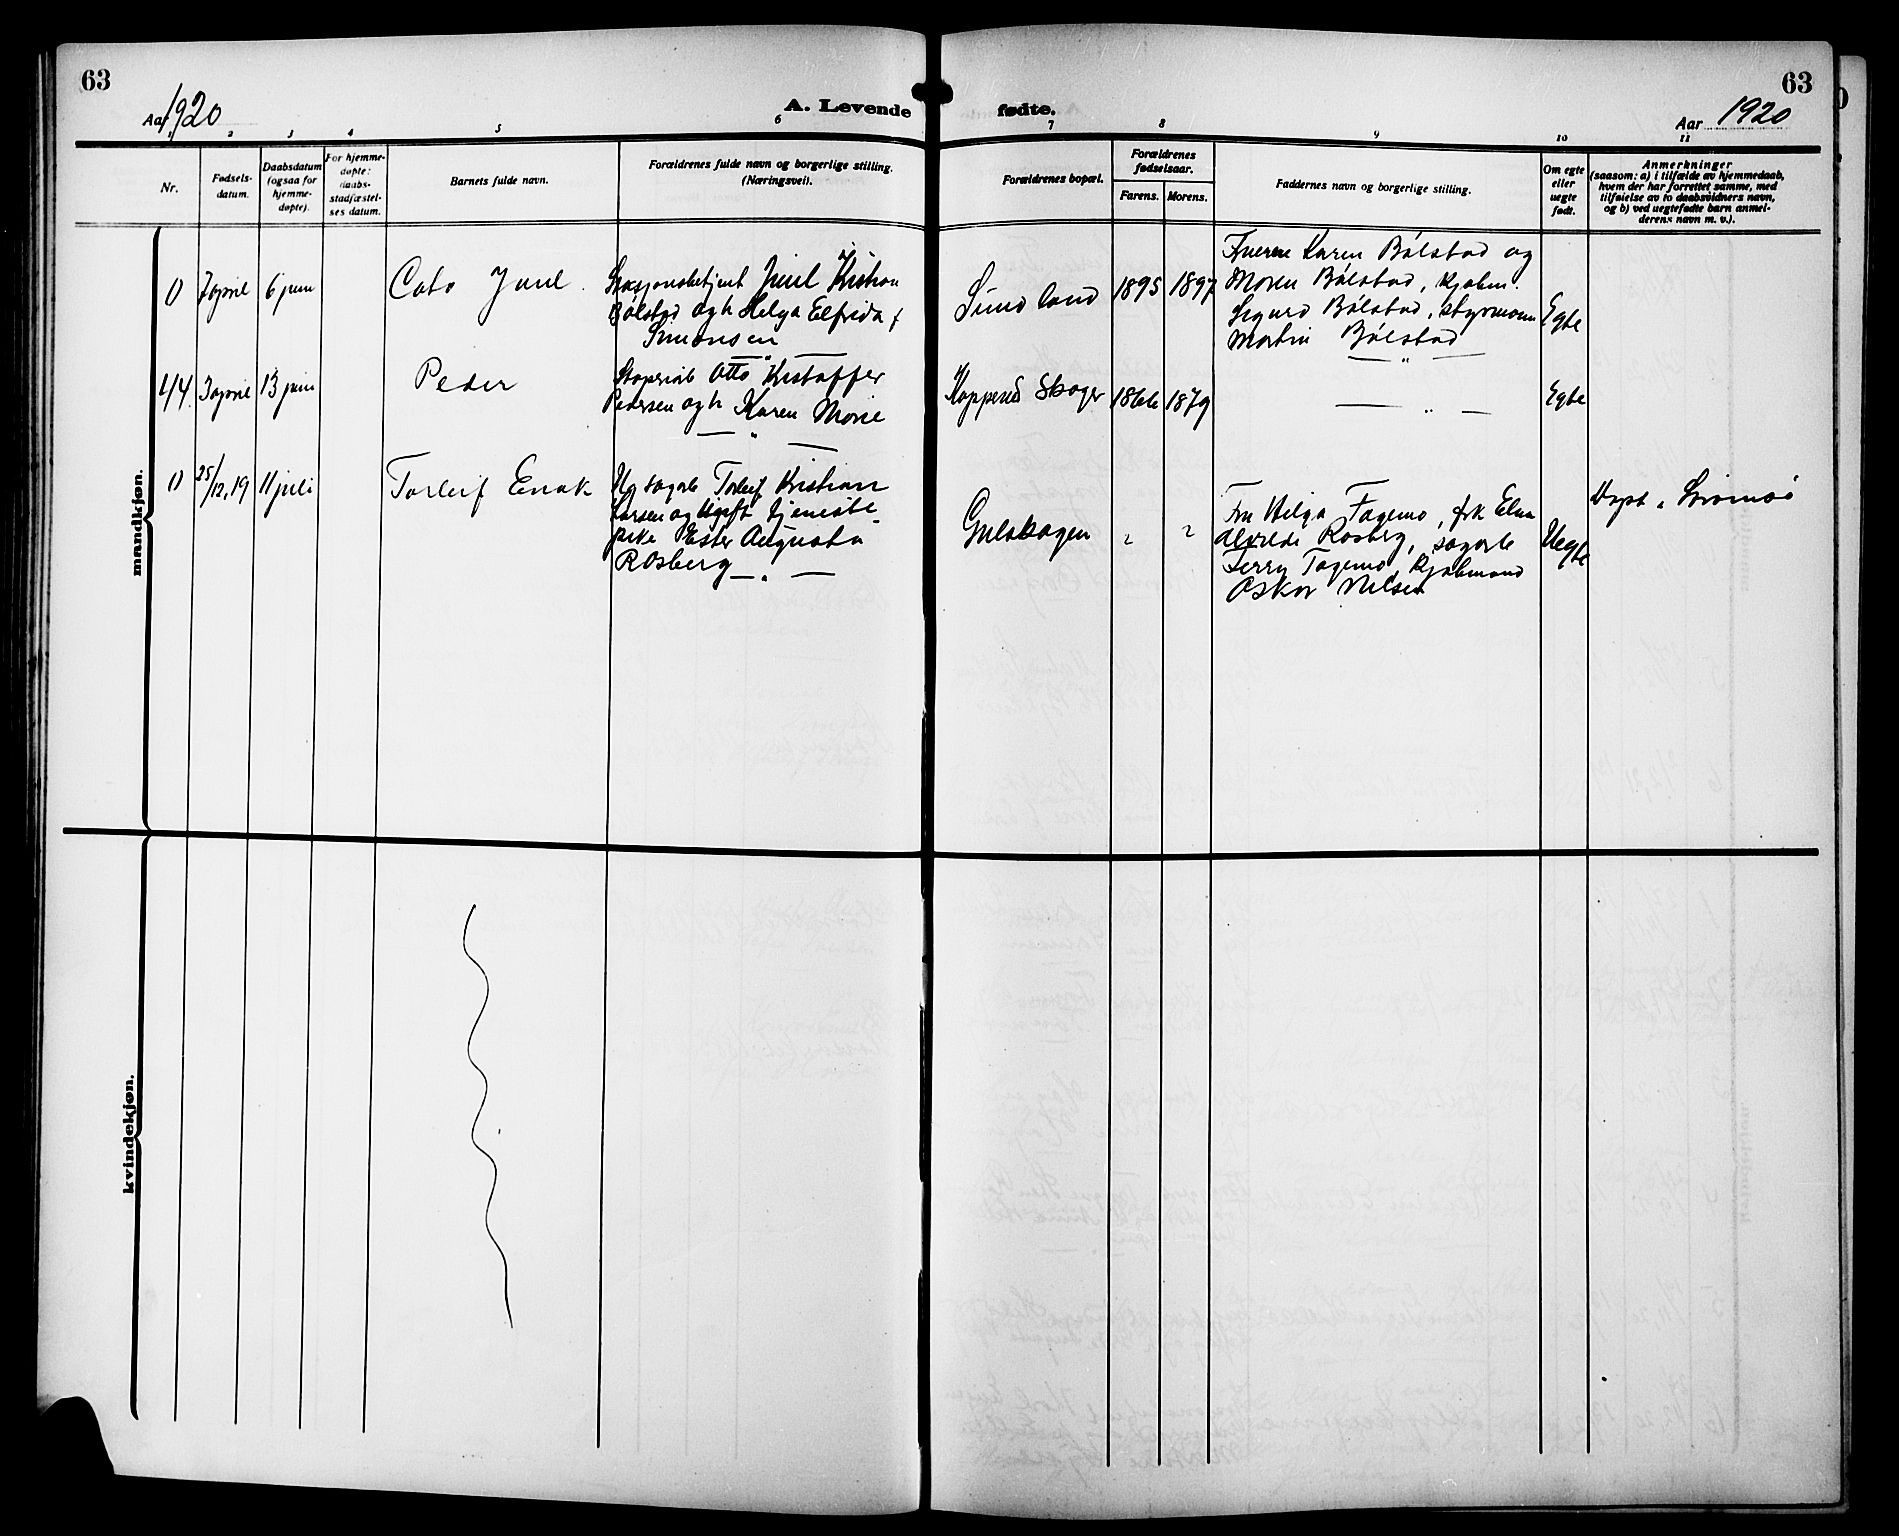 63
63
Aar 1920
A. Levende
fødte.
Aar 1920
1 2 3 4 5 6
7 8 9 10 11
Nr.
Fødsels-
datum.
Daabsdatum
(ogsaa for
hjemme-
døpte).
For hjemme-
døpte:
daabs-
stadfæstel-
ses datum.
Barnets fulde navn.
Forældrenes fulde navn og borgerlige stilling.
(Næringsvei).
Forældrenes bopæl.
Forældrenes
fødselsaar.
Farens.
Morens.
Faddernes navn og borgerlige stilling.
Om egte
eller
uegte
født.
Anmerkninger
(saasom: a) i tilfælde av hjemmedaab,
hvem der har forrettet samme, med
tilføielse av to daabsvidners navn,
og b) ved uegtefødte barn anmel-
derens navn m. v.).
mandkjøn.
0
7 april
6 juni
Cato Juul
Juul Kristian
Bølstad og h Helga Elfrida f
Simonsen
Sundland
1895
1897
Fruerne Karen Bølstad og
Maren Bølstad, kjøbm.
Sigurd Bølstad, styrmann
Martin Bølstad
Egte
44
3 april
13 juni
Peder
Otto Kristoffer
Pedersen og h Karen Marie
— " —
Skoger
1866
1879
— " —
Egte
0
25/12,19
11 juli
Torleif Enok
Torleif Kristian
Larsen og ugift tjeneste-
pike Ester Augusta
Rosberg — " —
Gulskogen
?
?
Fru Helga Fagemo, frk Elna
Rosberg, sagarb
Fagemo, Kjøbmand
Oskar Nilsen
Uegte
Døpt i Strømsø
kvindekjøn.